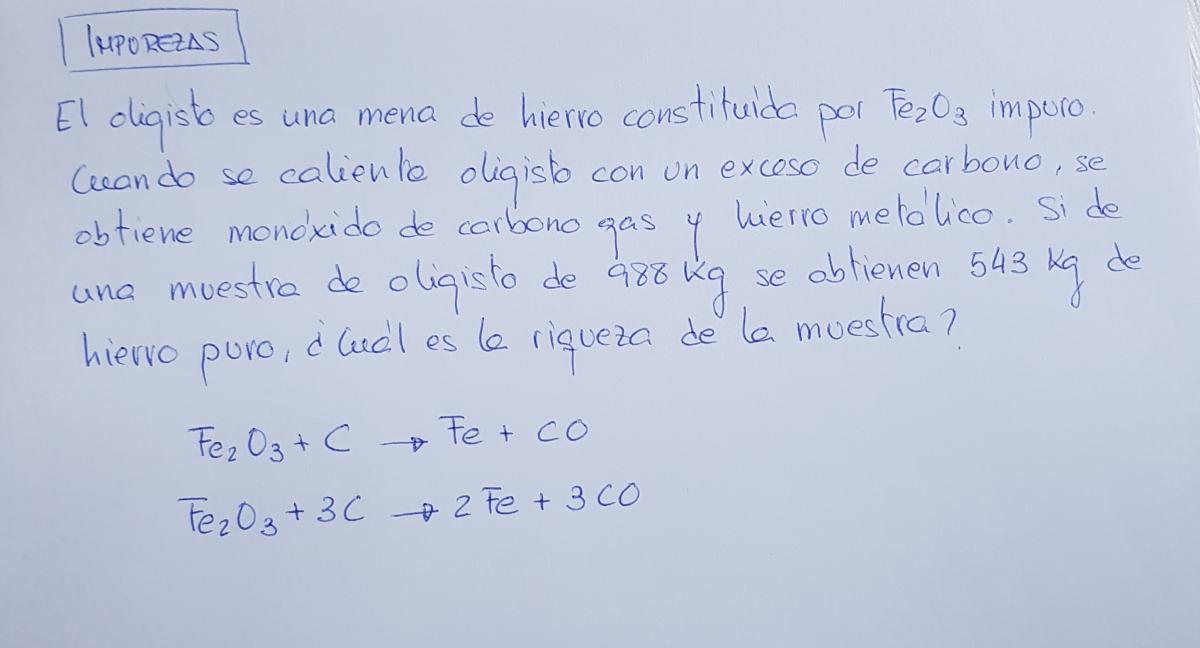 IMPUREZAS
El oligisto es una mena de hierro constituida por Fe₂O₃ impuro.
Cuando se calienta oligisto con un exceso de carbono, se
obtiene monóxido de carbono gas y hierro metálico. Si de
una muestra de oligisto de 988 Kg se obtienen 543 Kg de
hierro puro, ¿Cuál es la riqueza de la muestra?
Fe₂O₃ + C → Fe + CO
Fe₂O₃ + 3C → 2 Fe + 3 CO